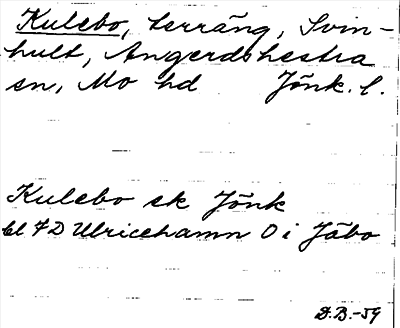 Kulebo, terräng, Svin-
hult, Angerdshestra
sn, Mo hd Jönk. l.
Kulebo ek Jönk
bl 7D Ulricehamn O i Jäbo
D.B.-59